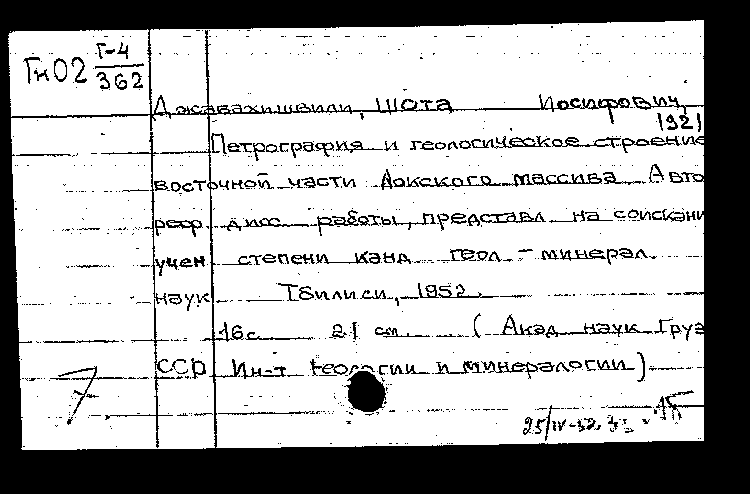 Гн02 Г-4
362
Джавахишвили, Шота Иосифович,
1921
Петрография и геологическое строение
восточной части Локского массива Авто
реф дисс работы, представл на соискани
учен степени канд геол - минерал.
наук Тбилиси, 1952.
16с. 21 см. (Акад наук Груз
ССР Ин-т геологии и минералогии)
7
25/IV-52.